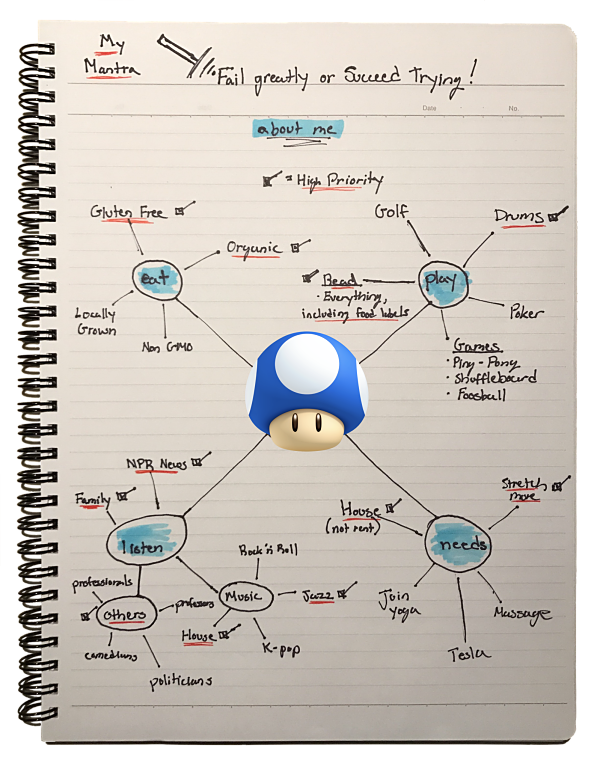 My
Mantra
Fail greatly or Succeed Trying!
Date
No.
about me
= High Priority
Gluten Free
Organic
eat
Locally
Grown
Non GMO
Golf
Drums
Read
• Everything,
including food labels
play
Poker
Games
• Ping-Pong
• Shuffleboard
• Foosball
NPR News
Family
listen
professionals
others
professors
comedians
politicians
Rock'n Roll
Music
Jazz
House
K-pop
House
(not rent)
Stretch
move
needs
Join
yoga
Massage
Tesla